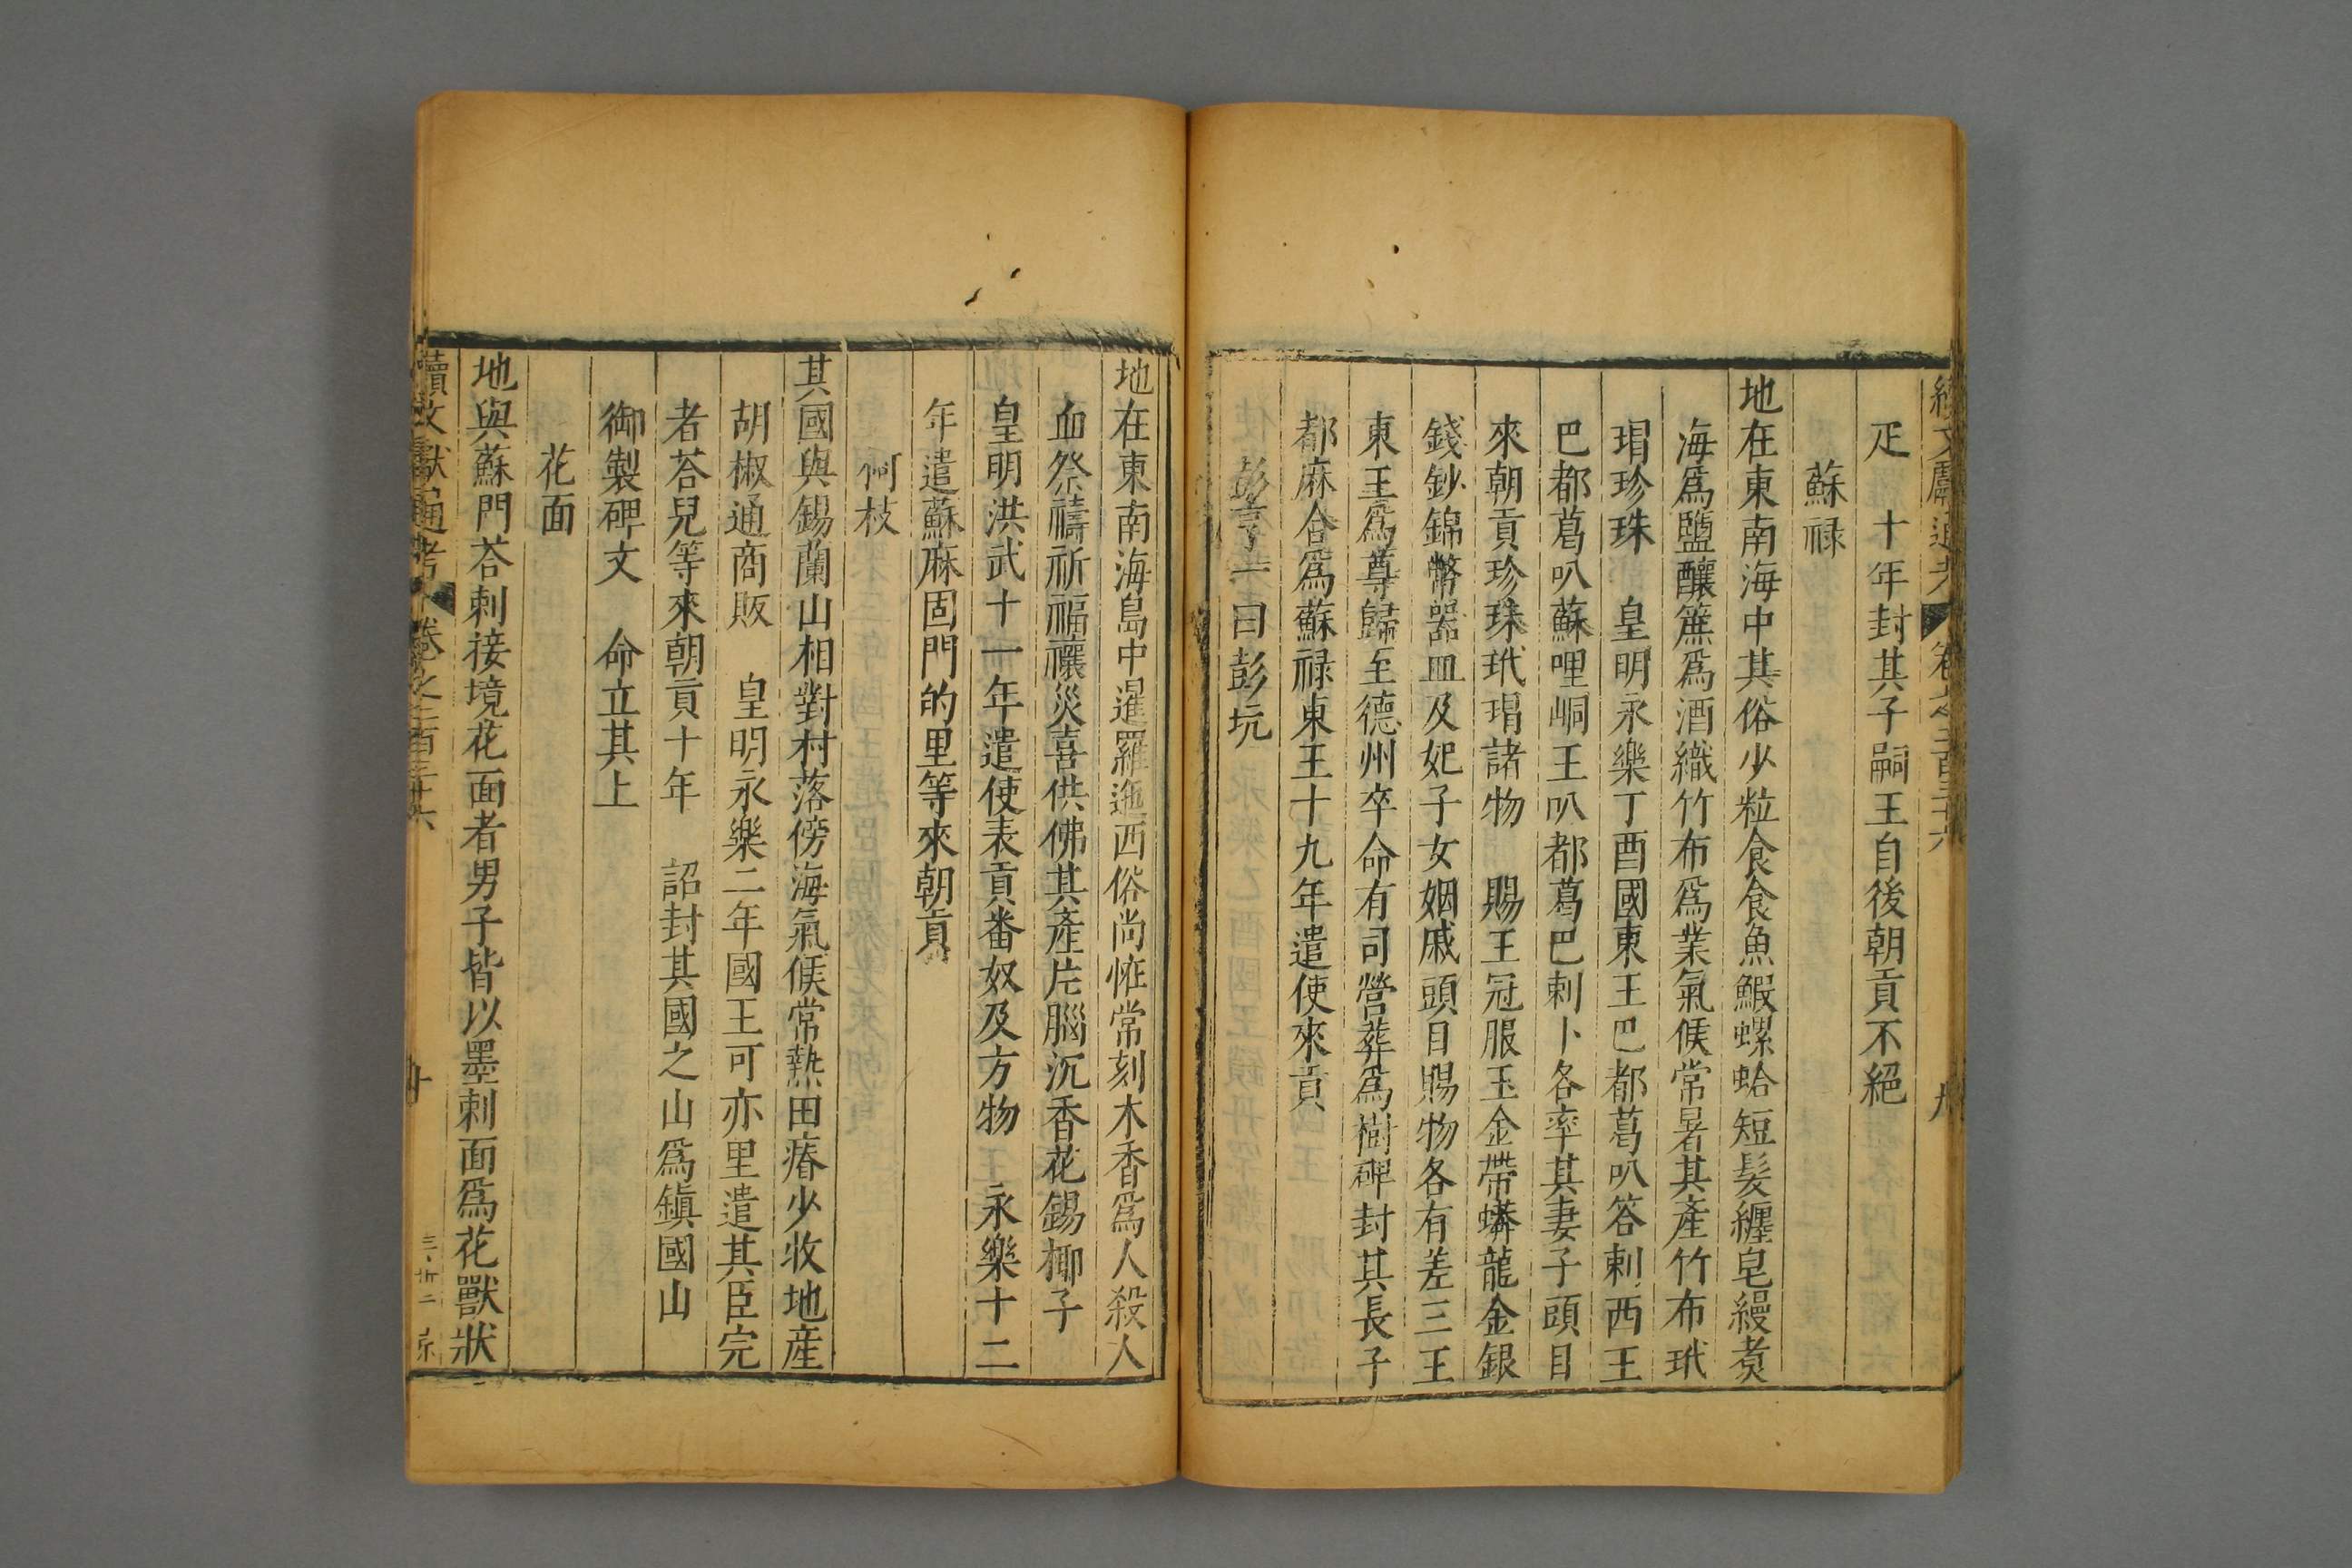 續文獻通考 卷之二百三十六
疋 十年封其子嗣王自後朝貢不絕
蘇祿
地在東南海中其俗少粒食食魚鰕螺蛤短髮纏皂縵煑
海爲鹽釀蔗爲酒織竹布爲業氣候常暑其產竹布玳
瑁珍珠 皇明永樂丁酉國東王巴都葛叭答剌西王
巴都葛叭蘇哩峒王叭都葛巴剌卜各率其妻子頭目
來朝貢珍珠玳瑁諸物 賜王冠服玉金帶蟒龍金銀
錢鈔錦幣器皿及妃子女姻戚頭目賜物各有差三王
東王爲尊歸至德州卒命有司營葬爲樹碑封其長子
都麻含爲蘇祿東王十九年遣使來貢
彭亨一曰彭坑
地在東南海島中暹羅迤西俗尚恠常刻木香爲人殺人
血祭禱祈福禳災喜供佛其產片腦沉香花錫椰子
皇明洪武十一年遣使表貢番奴及方物 永樂十二
年遣蘇麻固門的里等來朝貢
柯枝
其國與錫蘭山相對村落傍海氣候常熱田瘠少收地産
胡椒通商販 皇明永樂二年國王可亦里遣其臣完
者荅兒等來朝貢十年 詔封其國之山爲鎮國山
御製碑文 命立其上
花面
地與蘇門荅剌接境花面者男子皆以墨刺面爲花獸狀
續文獻通考 卷之二百三十六